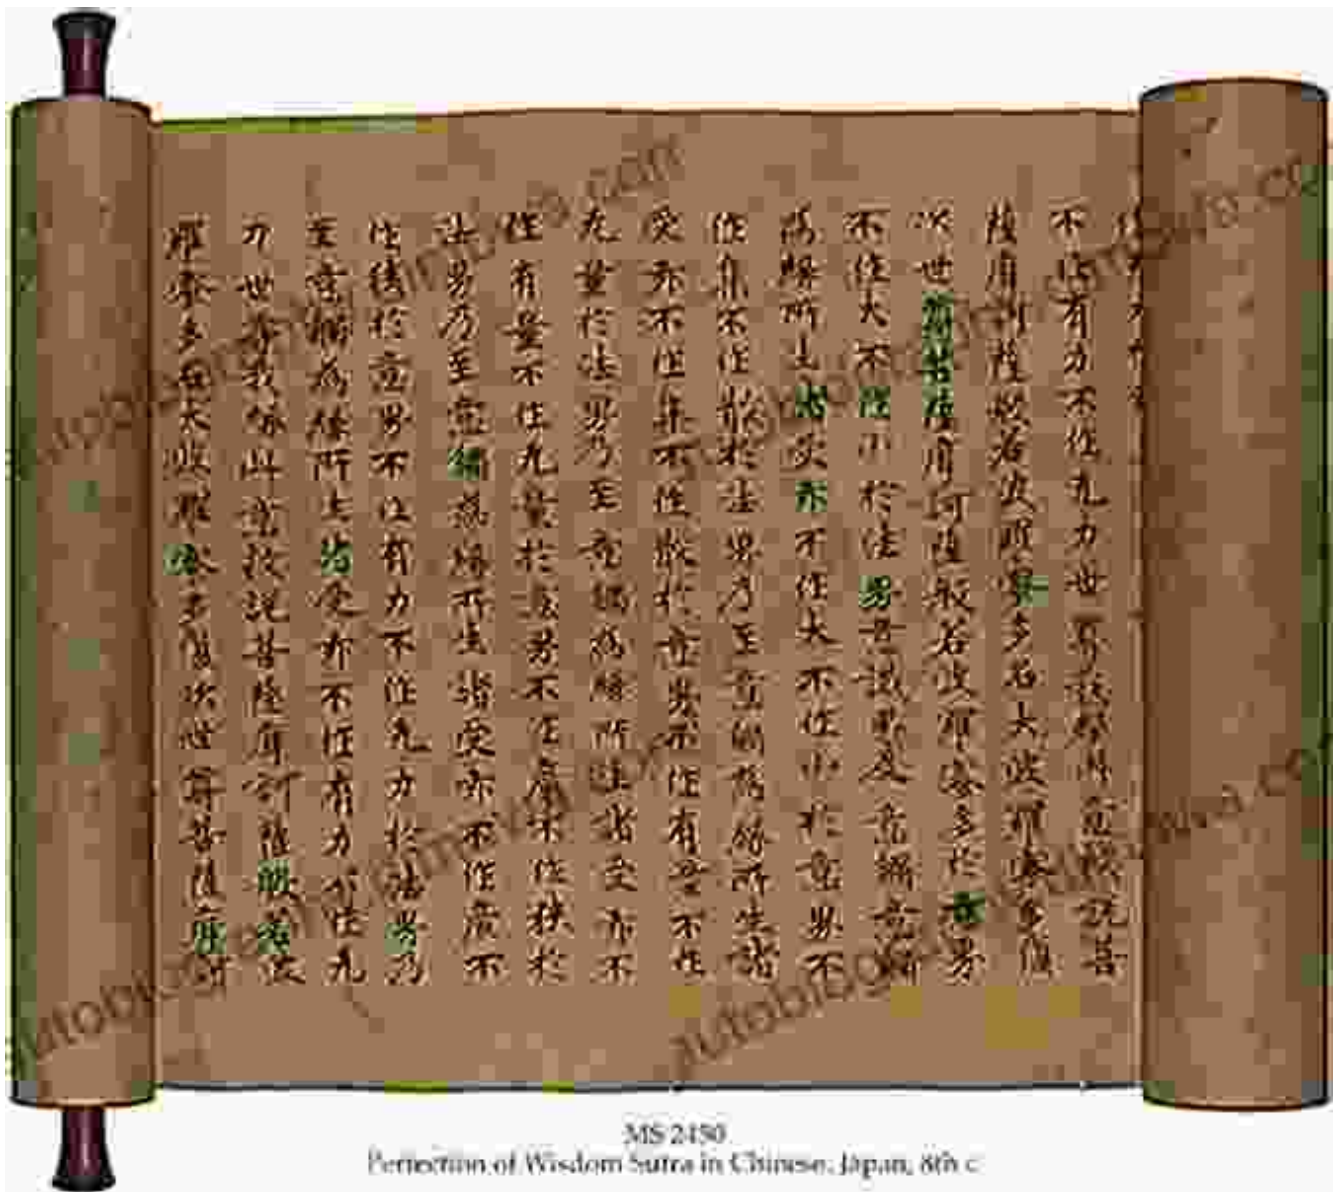 不作有力不作无力世尊我緣此意故說菩
薩摩訶薩般若波羅蜜多名大波羅蜜多復
次世尊若菩薩摩訶薩般若波羅蜜多於意界
不作大不作小於法界意識界及意觸意觸
為緣所生諸受亦不作大不作小於意界不
作集不作散於法界乃至意觸為緣所生諸
受亦不作集不作散於意界不作有量不作
无量於法界乃至意觸為緣所生諸受亦不
作有量不作无量於意界不作廣不作狹於
法界乃至意觸為緣所生諸受亦不作廣不
作狹於意界不作有力不作无力於法界乃
至意觸為緣所生諸受亦不作有力不作无
力世尊我緣此意故說菩薩摩訶薩般若波
羅蜜多名大波羅蜜多復次世尊菩薩摩訶
MS 2480
Perfection of Wisdom Sutra in Chinese. Japan, 8th c